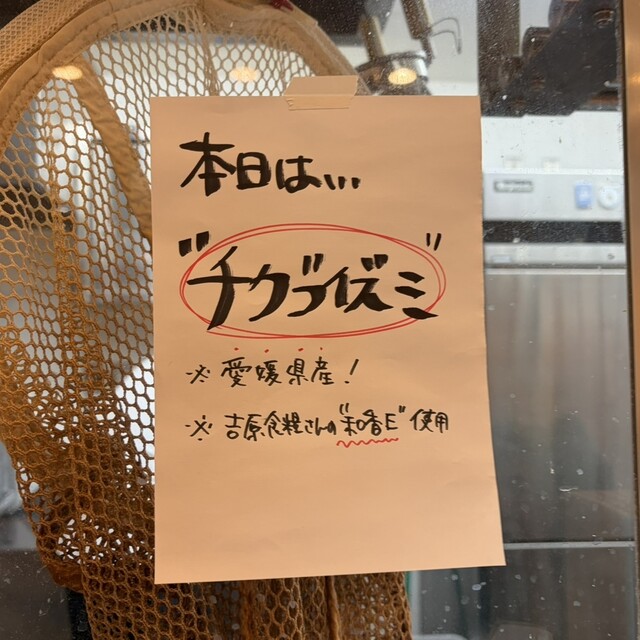 本日は...
"チクゴイズミ"
※愛媛県産!
※吉原食糧さんの"和香E"使用